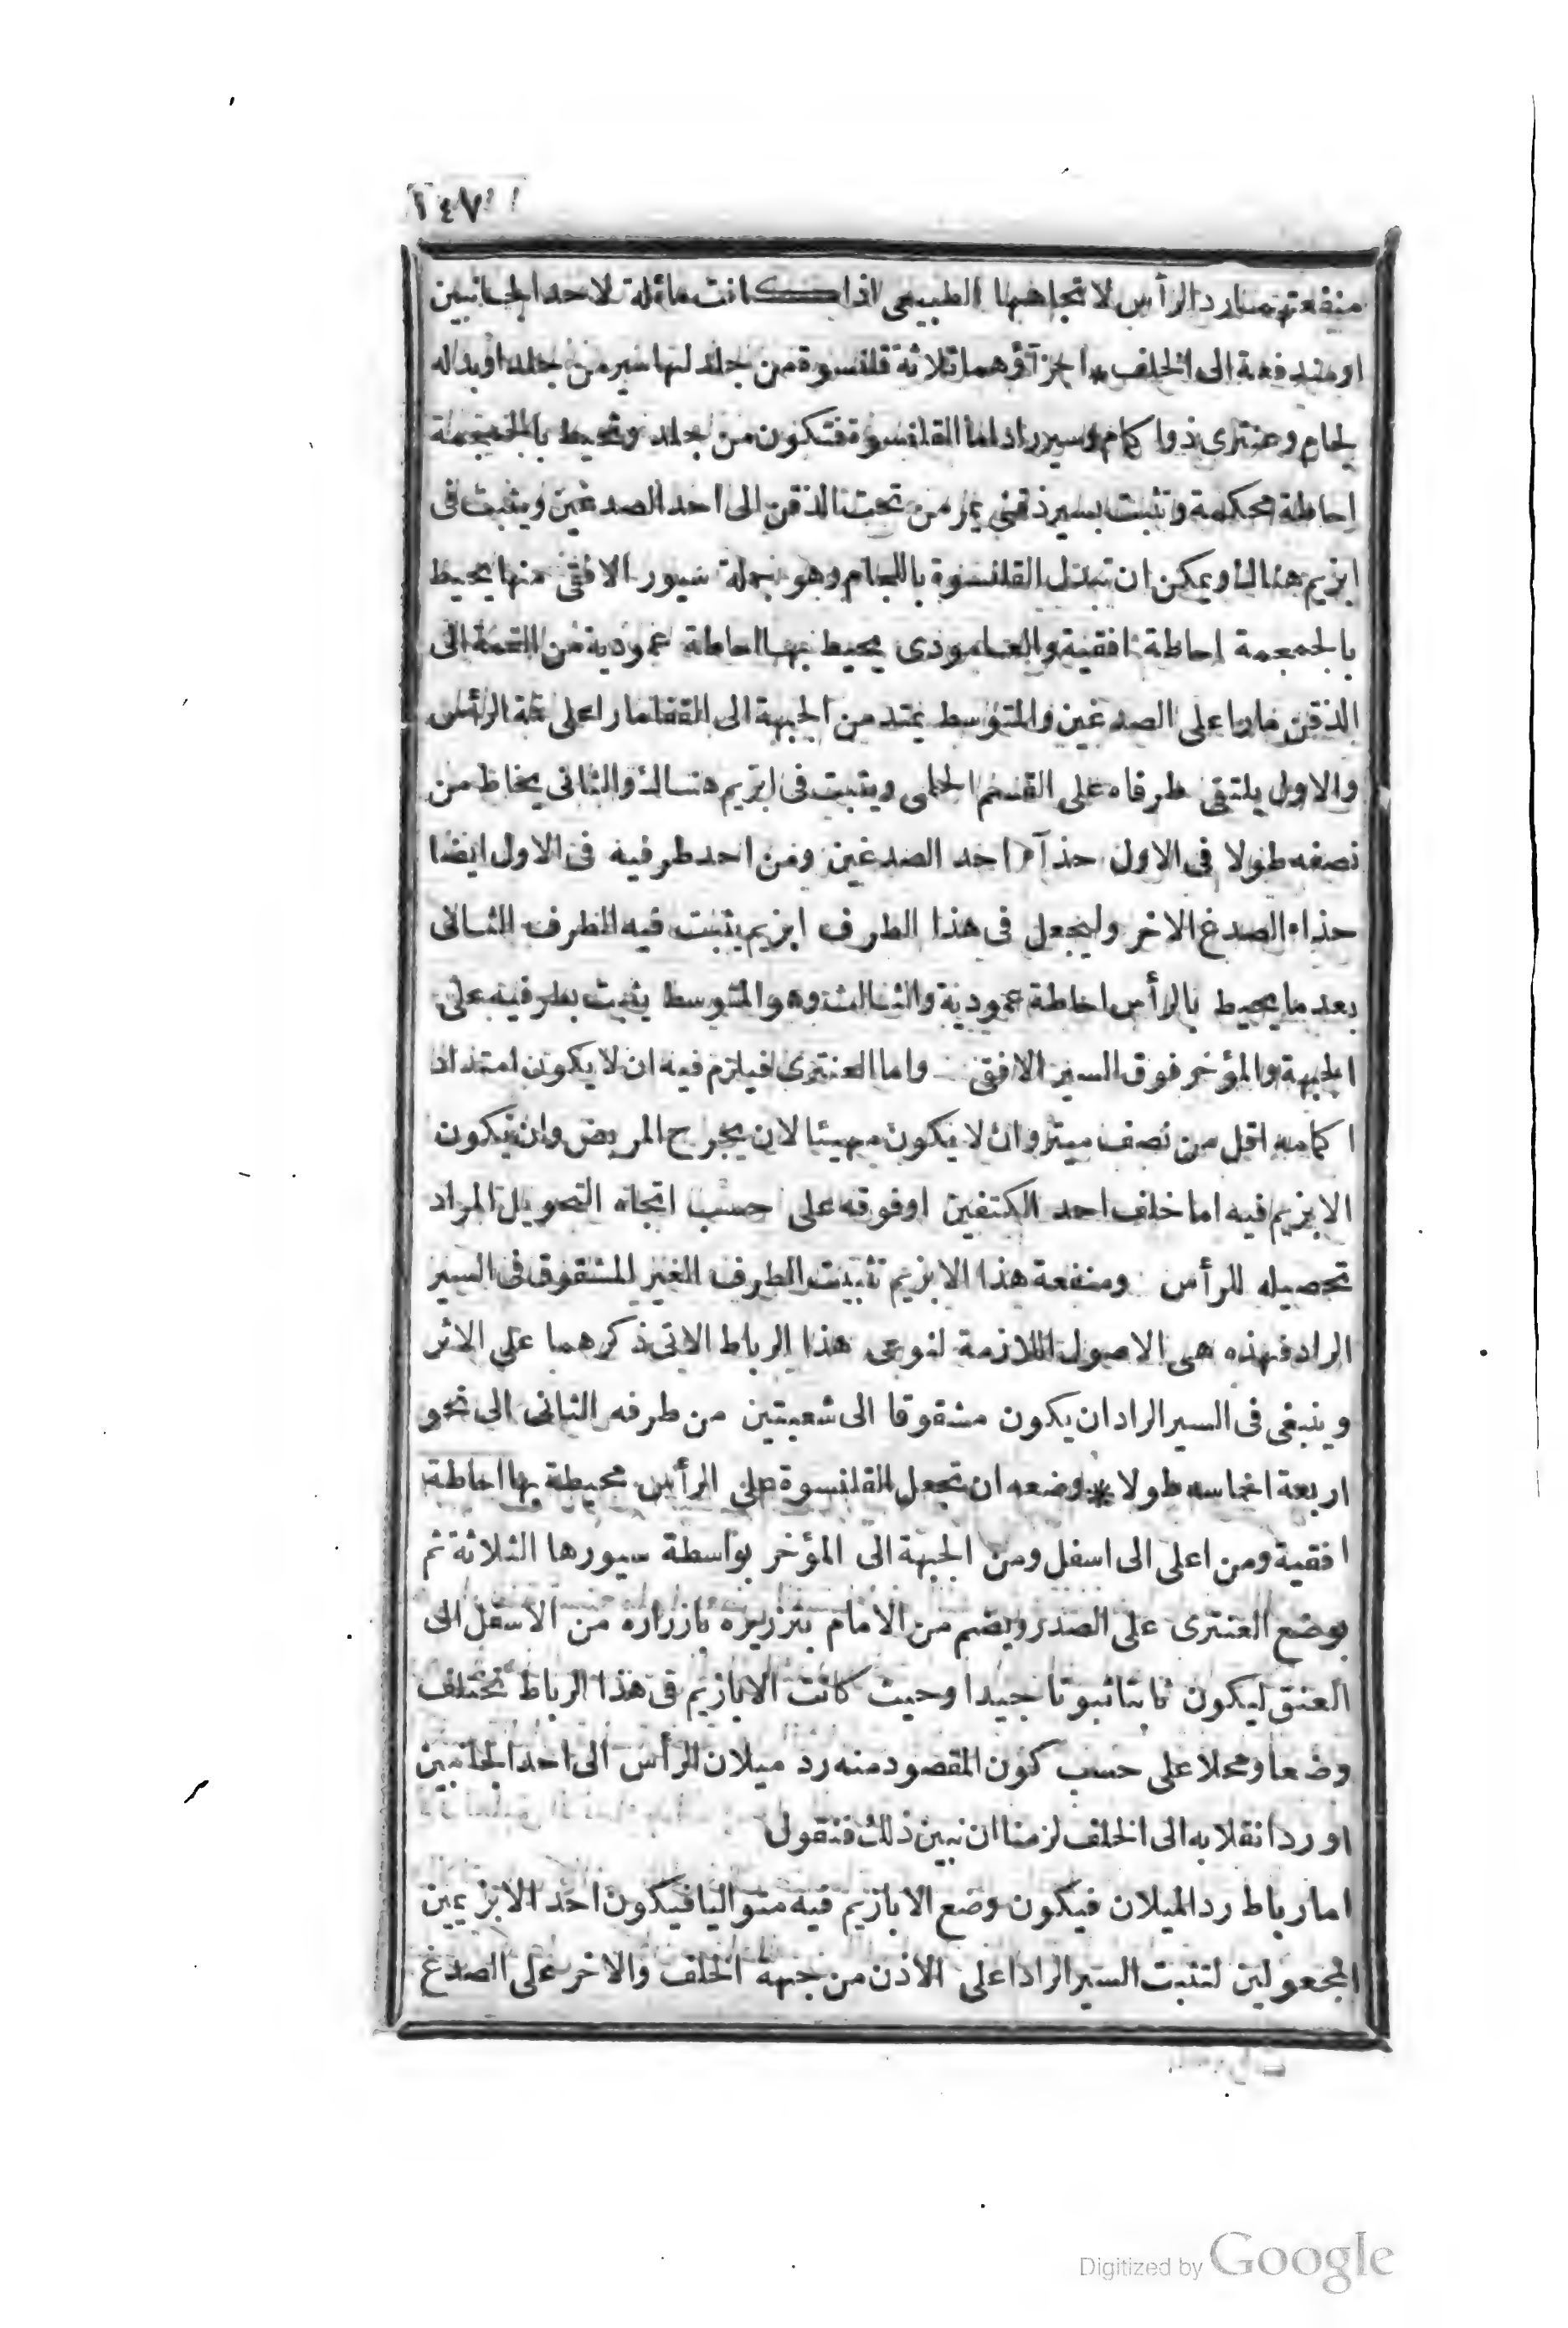 ١٤٧
منفعتهما رد الرأس لاتجاهها الطبيعى اذا كانت مائلة لاحد الجانبين
او مندفعة الى الخلف * اجزآؤهما ثلاثة قلنسوة من جلد لها سير من جلد او بداله
لجام وعنترى ذوا كمام وسير راد اما القلنسوة فتكون من جلد وتحيط بالجمجمة
احاطة محكمة وتثبت بسير ذقنى يمر من تحت الذقن الى احد الصدغين ويثبت فى
ابزيم هناك ويمكن ان تبدل القلنسوة باللجام وهو جملة سيور الافقى منها يحيط
بالجمجمة احاطة افقية والعامودى يحيط بها احاطة عمودية من القمة الى
الذقن مارا على الصدغين والمتوسط يمتد من الجبهة الى القفا مارا على قمة الرأس
والاول يلتقى طرفاه على القسم الحلمى ويثبت فى ابزيم هناك والثانى يخاط من
نصفه طولا فى الاول حذآء احد الصدغين ومن احد طرفيه فى الاول ايضا
حذاء الصدغ الاخر وليجعل فى هذا الطرف ابزيم يثبت فيه الطرف الثانى
بعد ما يحيط بالرأس احاطة عمودية والثالث وهو المتوسط يثبت بطرفيه على
الجبهة والمؤخر فوق السير الافقى واما العنترى فيلزم فيه ان لا يكون امتداد
اكمامه اقل من نصف ميترو ان لا يكون مهيئا لان يجرح المريض وان يكون
الابزيم فيه اما خلف احد الكتفين او فوقه على حسب اتجاه التحويل المراد
تحصيله للرأس ومنفعة هذا الابزيم تثبيت الطرف الغير المشقوق فى السير
الراد فهذه هى الاصول اللازمة لنوعى هذا الرباط الاتى ذكرهما على الاثر
وينبغى فى السير الراد ان يكون مشقوقا الى شعبتين من طرفه الثانى الى نحو
اربعة اخماسه طولا * وضعه ان تجعل القلنسوة على الرأس محيطة بها احاطة
افقية ومن اعلى الى اسفل ومن الجبهة الى المؤخر بواسطة سيورها الثلاثة ثم
يوضع العنترى على الصدر ويضم من الامام بتزريره بازراره من الاسفل الى
العنق ليكون ثابتا ثبوتا جيدا وحيث كانت الابازيم فى هذا الرباط تختلف
وضعا ومحلا على حسب كون المقصود منه رد ميلان الرأس الى احد الجانبين
او رد انقلابه الى الخلف لزمنا ان نبين ذلك فنقول
اما رباط رد الميلان فيكون وضع الابازيم فيه متواليا فيكون احد الابزيمين
المجعولين لتثبت السير الراد اعلى الاذن من جهة الخلف والاخر على الصدغ
Digitized by Google